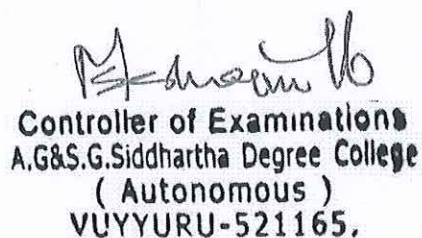 Controller of Examinations
A.G&S.G.Siddhartha Degree College
( Autonomous )
VUYYURU-521165.